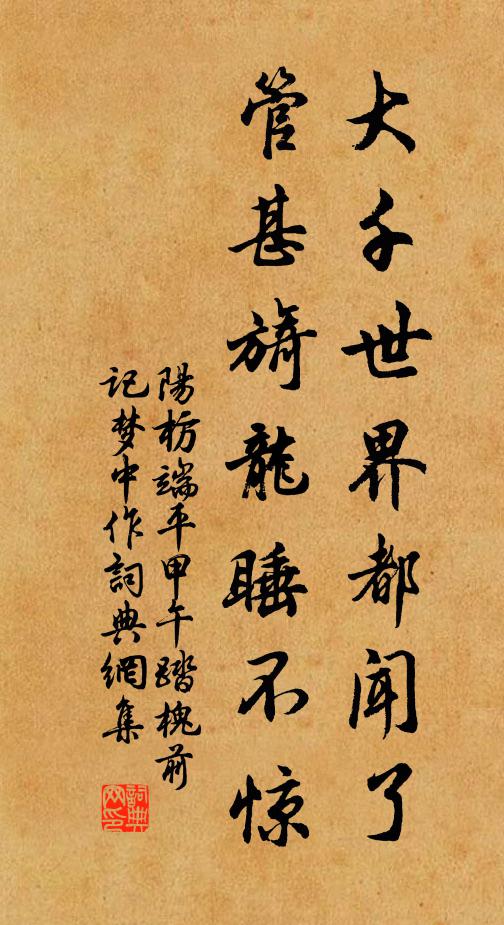 大千世界都闻了
管甚旖龍睡不惊
陽枋端平甲午踏槐前
记梦中作詞典網集